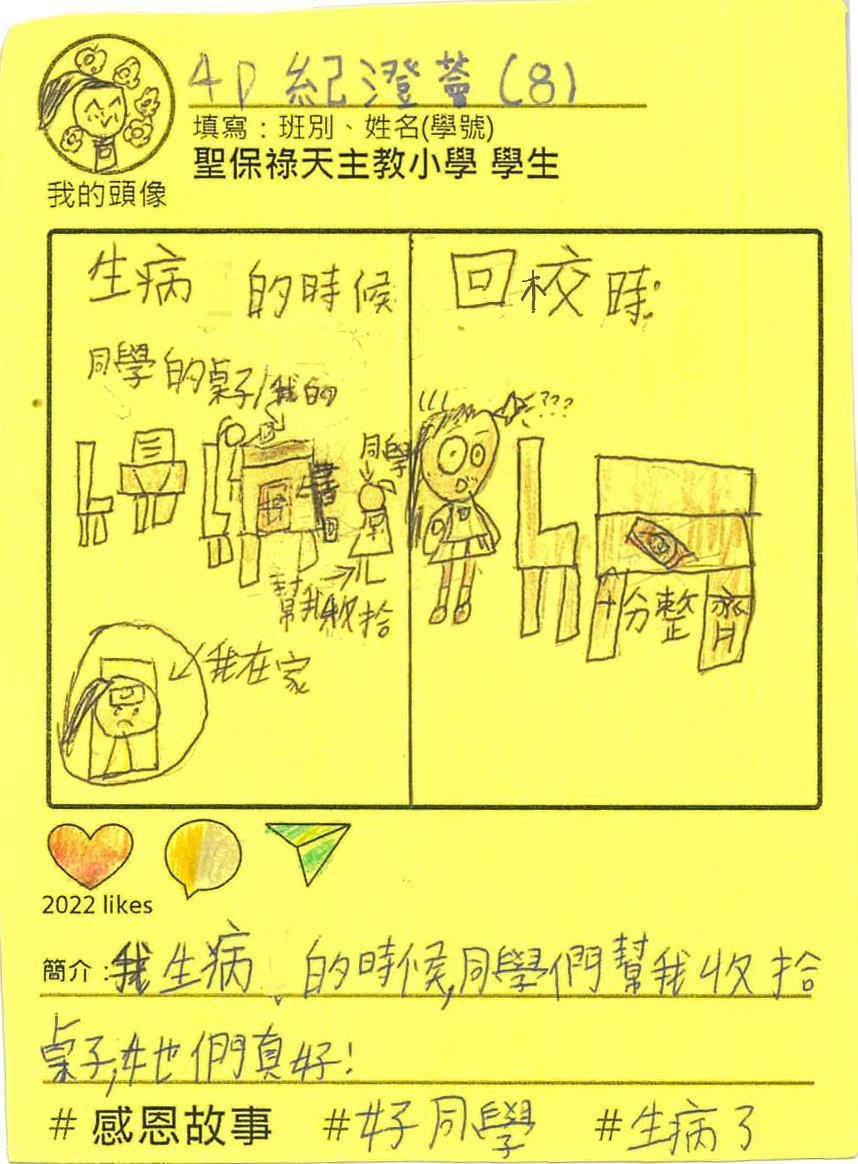 4D 紀澄薈(8)
填寫：班別、姓名(學號)
聖保祿天主教小學 學生
我的頭像
生病 的時候
同學的桌子/我的
同學
書
幫我收拾
我在家
回校時:
!!!
???
十分整齊
2022 likes
簡介：我生病 的時候,同學們幫我收拾
桌子,她們真好!
# 感恩故事 #好同學 #生病了